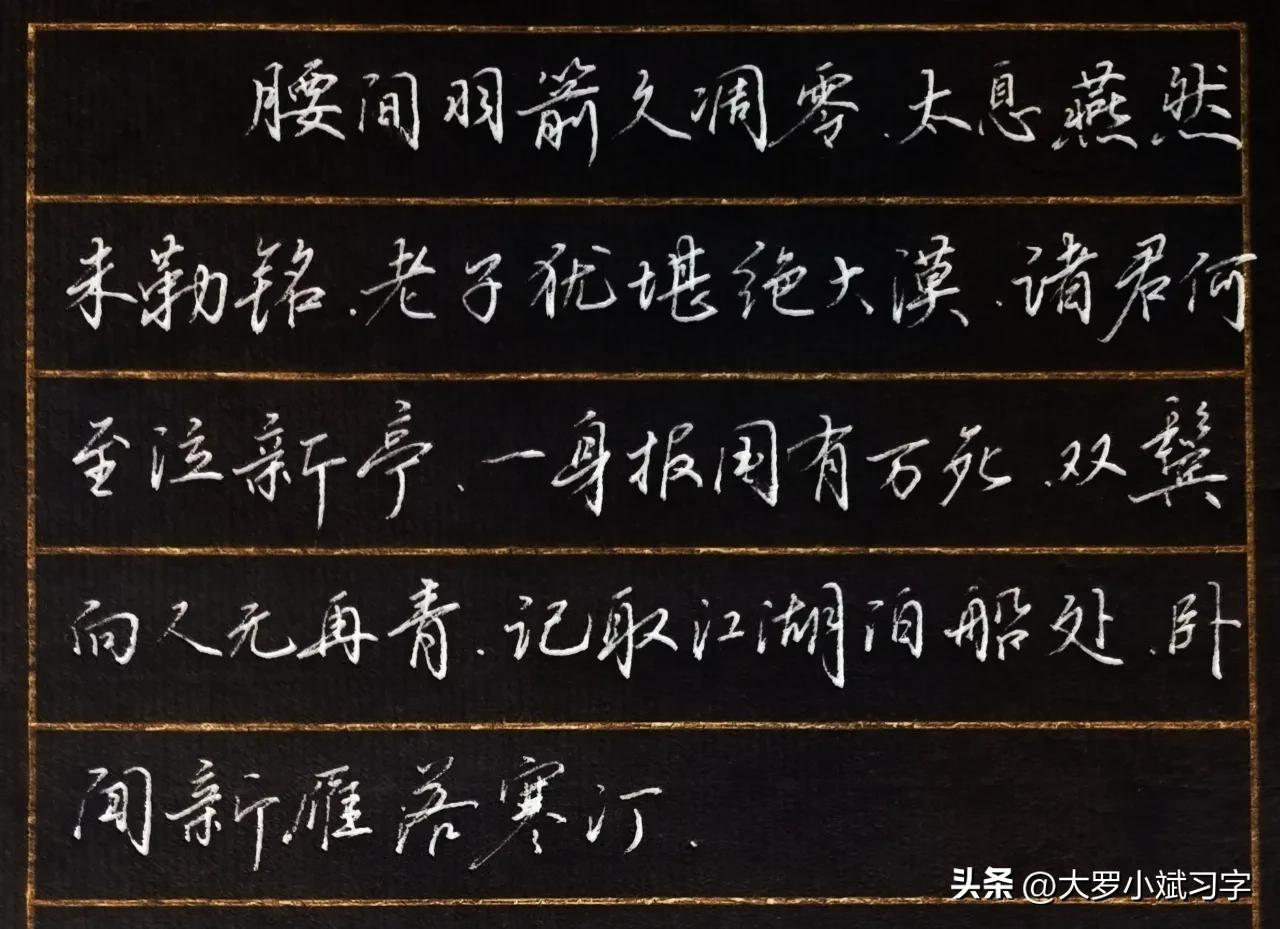 腰间羽箭久凋零.太息燕然
未勒铭.老子犹堪绝大漠.诸君何
至泣新亭.一身报国有万死.双鬓
向人无再青.记取江湖泊船处.卧
闻新雁落寒汀.
头条 @大罗小斌习字